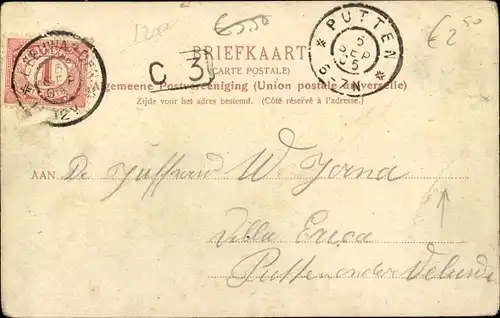 €5.50
€2,50
BRIEFKAART
(CARTE POSTALE)
C 3
Algemeene Postvereeniging (Union postale universelle)
Zijde voor het adres bestemd. (Côté réservé à l'adresse.)
LEEUWARDEN
PUTTEN
5
SEP
05
AAN De Juffrouw W. Jorna
Villa Erica
Putten on der Veluwe